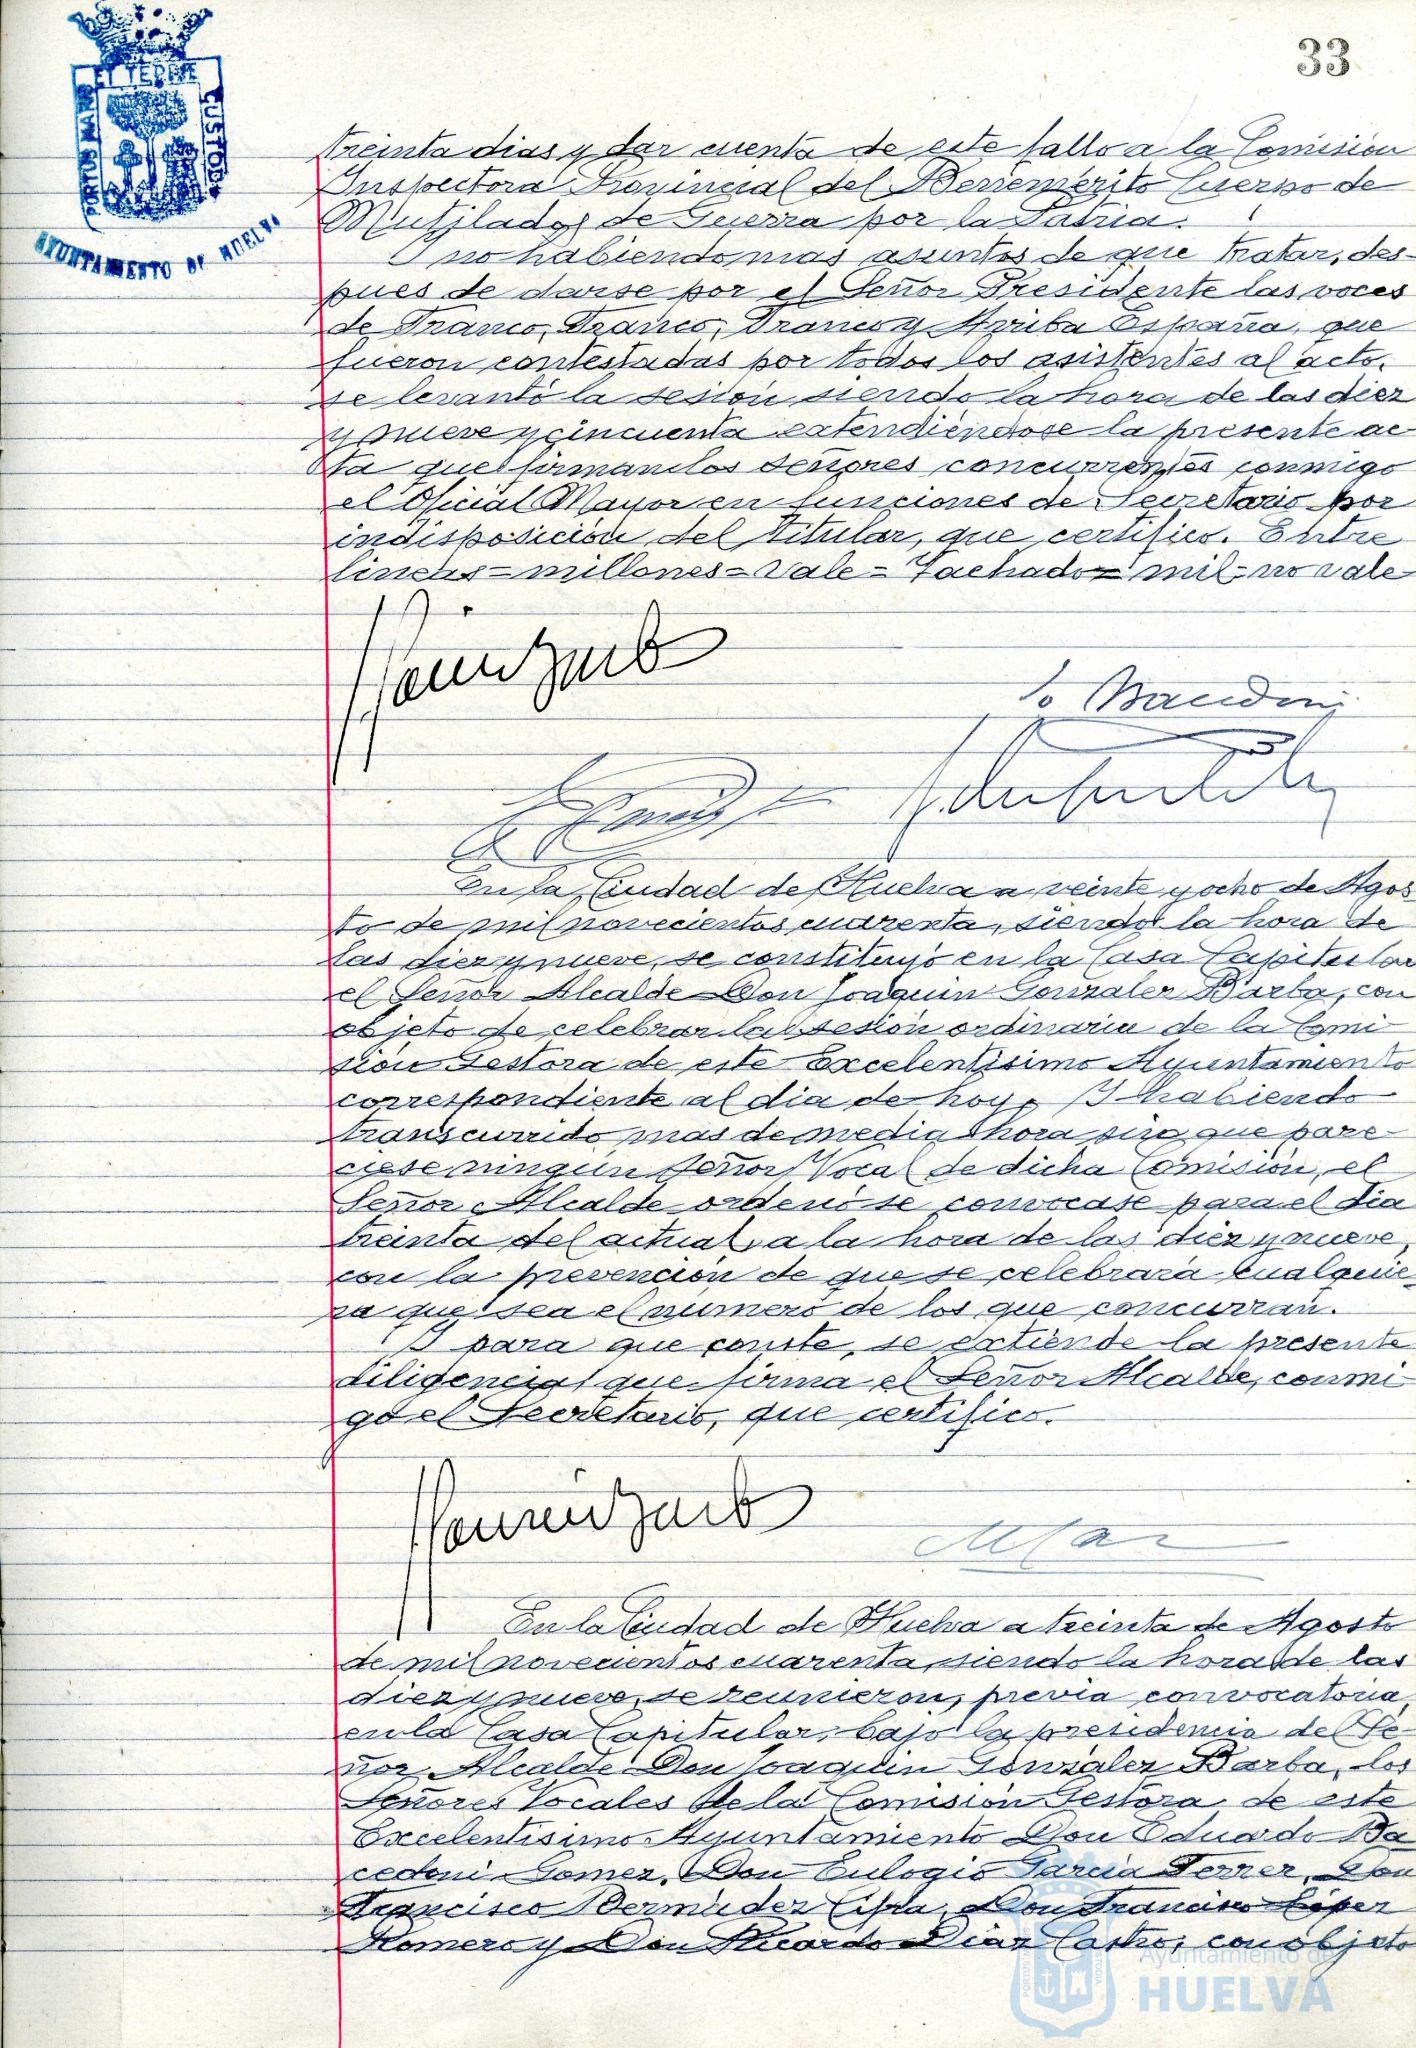 33
PORTUS MARIS ET TERRE CUSTODIA
AYUNTAMIENTO DE HUELVA
treinta dias y dar cuenta de este fallo a la Comisión
Inspectora Provincial del Benemérito Cuerpo de
Mutilados de Guerra por la Patria.
Y no habiendo mas asuntos de que tratar, des-
pues de darse por el Señor Presidente las voces
de Franco, Franco, Franco y Arriba España, que
fueron contestadas por todos los asistentes al acto,
se levantó la sesión siendo la hora de las diez
y nueve y cincuenta extendiéndose la presente ac-
ta que firman los señores concurrentes conmigo
el Oficial Mayor en funciones de Secretario por
indisposición del titular, que certifico. Entre
lineas=millones=vale=Tachado=mil=no vale
En la Ciudad de Huelva a veinte y ocho de Agos
to de mil novecientos cuarenta, siendo la hora de
las diez y nueve, se constituyó en la Casa Capitular
el Señor Alcalde Don Joaquin Gonzalez Barba, con
objeto de celebrar la sesión ordinaria de la Comi
sión Gestora de este Excelentisimo Ayuntamiento
correspondiente al dia de hoy. Y habiendo
transcurrido mas de media hora sin que pare-
ciese ningún Señor Vocal de dicha Comisión, el
Señor Alcalde ordenó se convocase para el dia
treinta del actual, a la hora de las diez y nueve,
con la prevención de que se celebrará cualquie-
ra que sea el número de los que concurran.
Y para que conste, se extiende la presente
diligencia que firma el Señor Alcalde, conmi-
go el Secretario, que certifico.
En la Ciudad de Huelva a treinta de Agosto
de mil novecientos cuarenta, siendo la hora de las
diez y nueve, se reunieron, previa convocatoria,
en la Casa Capitular, bajo la presidencia del Se-
ñor Alcalde Don Joaquin Gonzalez Barba, los
Señores Vocales de la Comisión Gestora de este
Excelentisimo Ayuntamiento Don Eduardo Ba
cedoni Gomez, Don Eulogio Garcia Ferrer, Don
Francisco Bermudez Don Francisco López
Romero y Don Ricardo Diaz Castro, con objeto
Ayuntamiento de
HUELVA